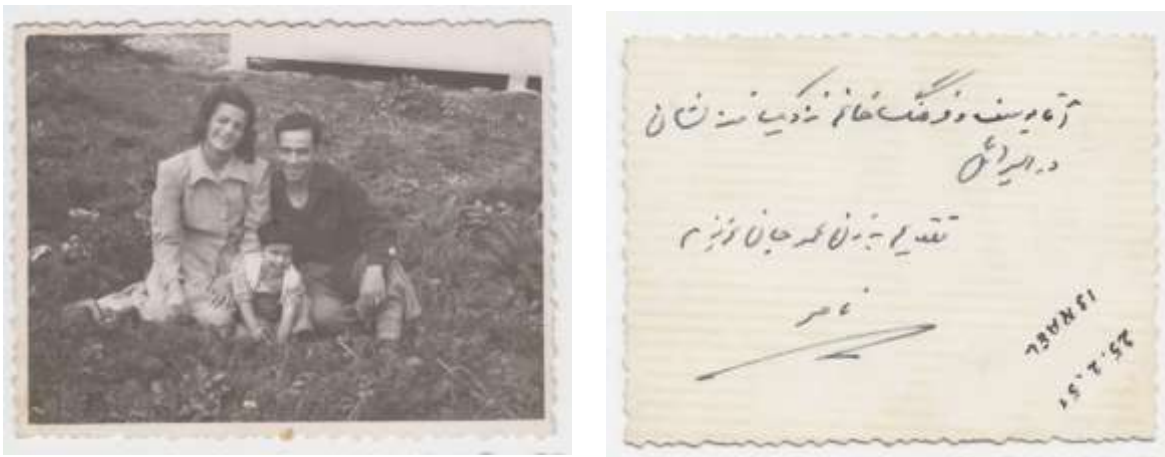 آقا یوسف و فرنگیس خانم نزدیک خانه‌شان
در اسرائیل
تقدیم به زن عمو جان عزیزم
ناصر
ISRAEL
25.2.51